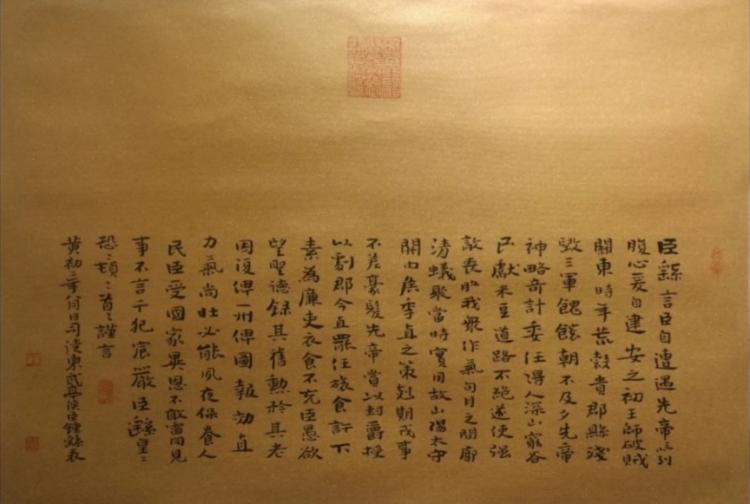 臣繇言臣自遭遇先帝忝列
腹心爰自建安之初王師破賊
關東時年荒穀貴郡縣殘
毀三軍餽饟朝不及夕先帝
神略奇計委任得人深山窮谷
民獻米豆道路不絕遂使強
敵喪胆我眾作氣旬月之間廓
清蟻聚當時實用故山陽太守
關內侯季直之策剋期成事
不差豪髮先帝賞以封爵授
以劇郡今直罷任旅食許下
素為廉吏衣食不充臣愚欲
望聖德錄其舊勳矜其老
困復俾一州俾圖報効直
力氣尚壯必能夙夜保養人
民臣受國家異恩不敢雷同見
事不言干犯宸嚴臣繇皇々
恐々頓々首々謹言
黃初二年 月日司徒東武亭侯臣鍾繇表